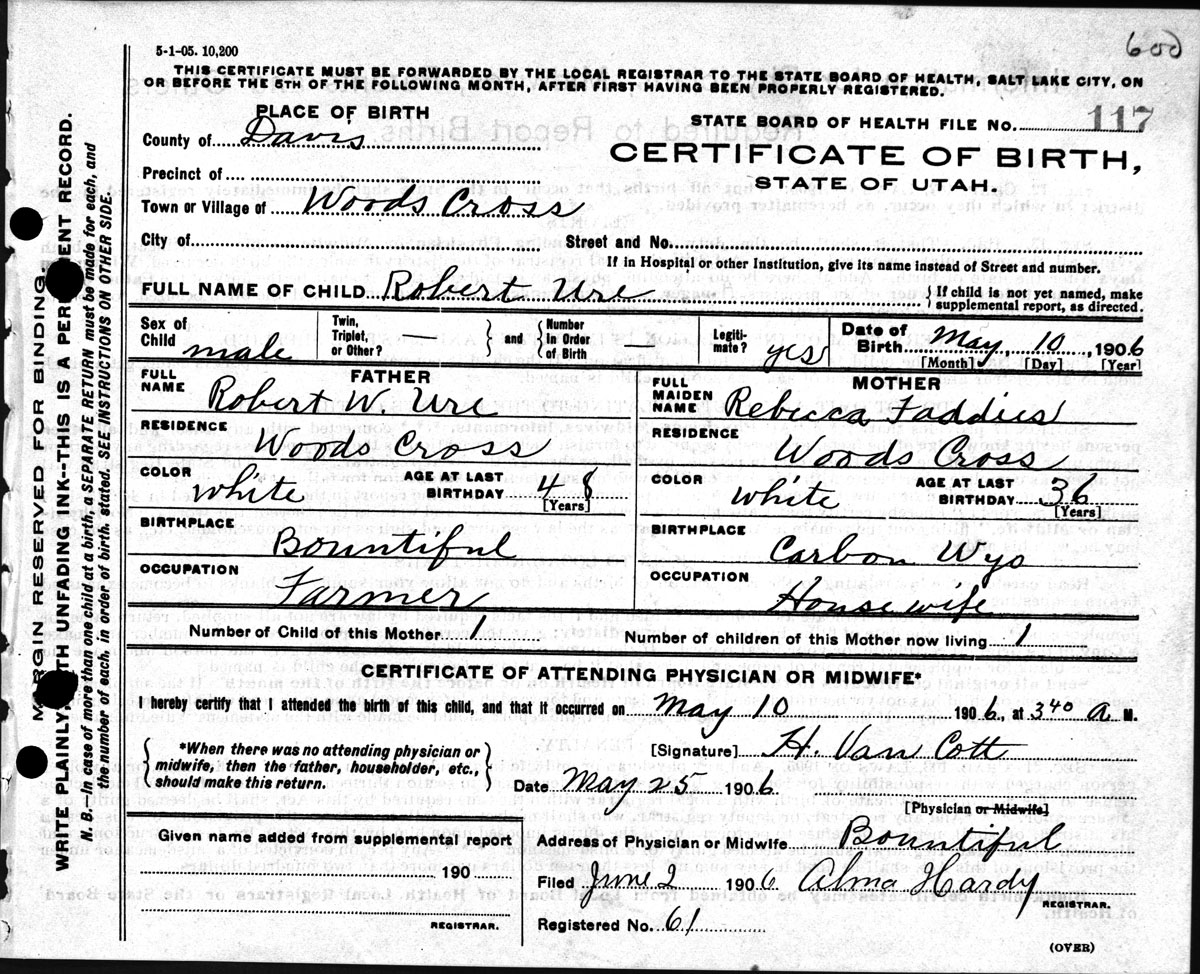 5-1-05. 10,200
600
THIS CERTIFICATE MUST BE FORWARDED BY THE LOCAL REGISTRAR TO THE STATE BOARD OF HEALTH, SALT LAKE CITY, ON
OR BEFORE THE 5TH OF THE FOLLOWING MONTH, AFTER FIRST HAVING BEEN PROPERLY REGISTERED.
PLACE OF BIRTH
STATE BOARD OF HEALTH FILE No. 117
County of Davis
CERTIFICATE OF BIRTH,
Precinct of
STATE OF UTAH.
Town or Village of Woods Cross
City of Street and No.
If in Hospital or other Institution, give its name instead of Street and number.
FULL NAME OF CHILD Robert Ure { If child is not yet named, make
supplemental report, as directed.
Sex of
Child male
Twin,
Triplet,
or Other? —
} and {
Number
in Order
of Birth
Legiti-
mate? yes
Date of
Birth May, 10, 1906
[Month] [Day] [Year]
FATHER
FULL
NAME Robert W. Ure
RESIDENCE
Woods Cross
COLOR white AGE AT LAST
BIRTHDAY 48
[Years]
BIRTHPLACE
Bountiful
OCCUPATION
Farmer
MOTHER
FULL
MAIDEN
NAME Rebecca Faddies
RESIDENCE
Woods Cross
COLOR white AGE AT LAST
BIRTHDAY 36
[Years]
BIRTHPLACE
Carbon Wyo
OCCUPATION
Housewife
Number of Child of this Mother 1 Number of children of this Mother now living 1
CERTIFICATE OF ATTENDING PHYSICIAN OR MIDWIFE*
I hereby certify that I attended the birth of this child, and that it occurred on May 10 1906, at 3 40 A M.
{ *When there was no attending physician or
midwife, then the father, householder, etc.,
should make this return. }
[Signature] H. Van Cott
Date May 25 1906.
[Physician or Midwife]
Given name added from supplemental report
190
REGISTRAR.
Address of Physician or Midwife Bountiful
Filed June 2 1906 Alma Hardy
REGISTRAR.
Registered No. 61
(OVER)
MARGIN RESERVED FOR BINDING.
WRITE PLAINLY WITH UNFADING INK--THIS IS A PERMANENT RECORD.
N. B.--In case of more than one child at a birth, a SEPARATE RETURN must be made for each, and
the number of each, in order of birth, stated. SEE INSTRUCTIONS ON OTHER SIDE.